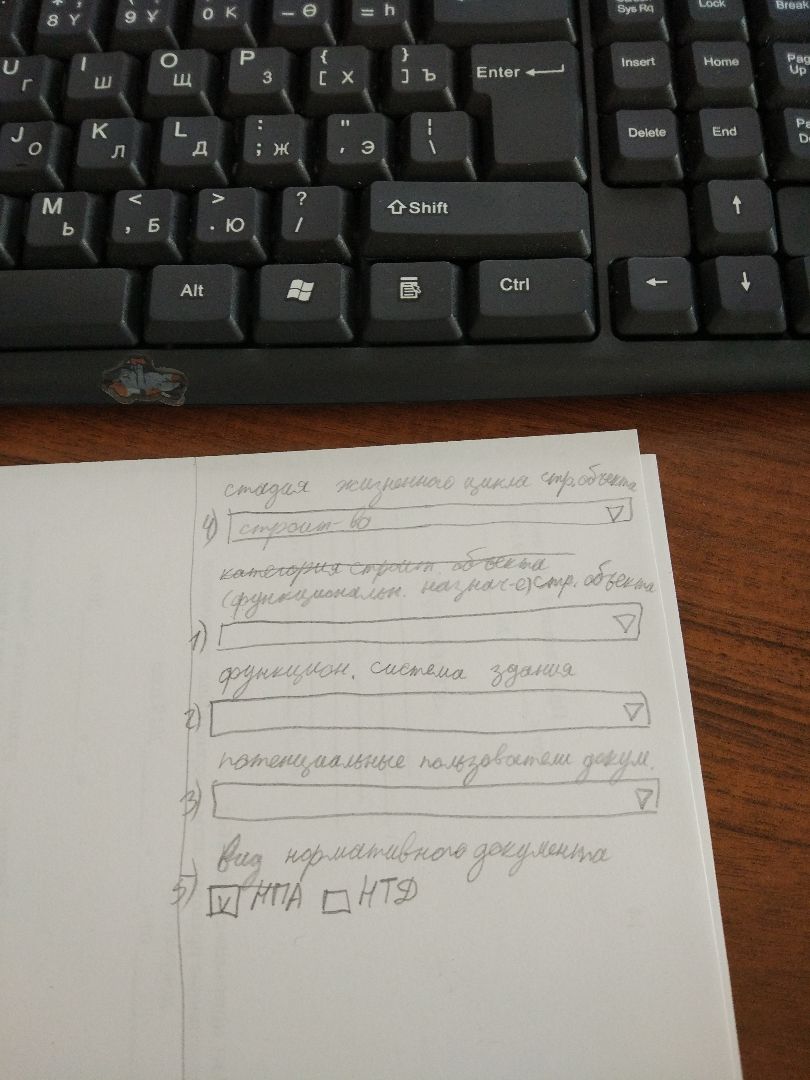 * : 8 Ү ( 9 ¥ ) 0 К _ - Ө + = һ Sys Rq Lock Break
U Г I Ш O Щ P З { [ Х } ] Ъ Enter Insert Home Page Up
J О K Л L Д : ; Ж " ' Э | \ Delete End
M Ь < , Б > . Ю ? / Shift ↑
Alt Ctrl ← ↓
стадия жизненного цикла стр.объекта
4) строит-во
категория строит. объекта
(функциональн. назнач-е) стр. объекта
1)
функцион. система здания
2)
потенциальные пользователи докум.
3)
Вид нормативного документа
5) V НПА НТД